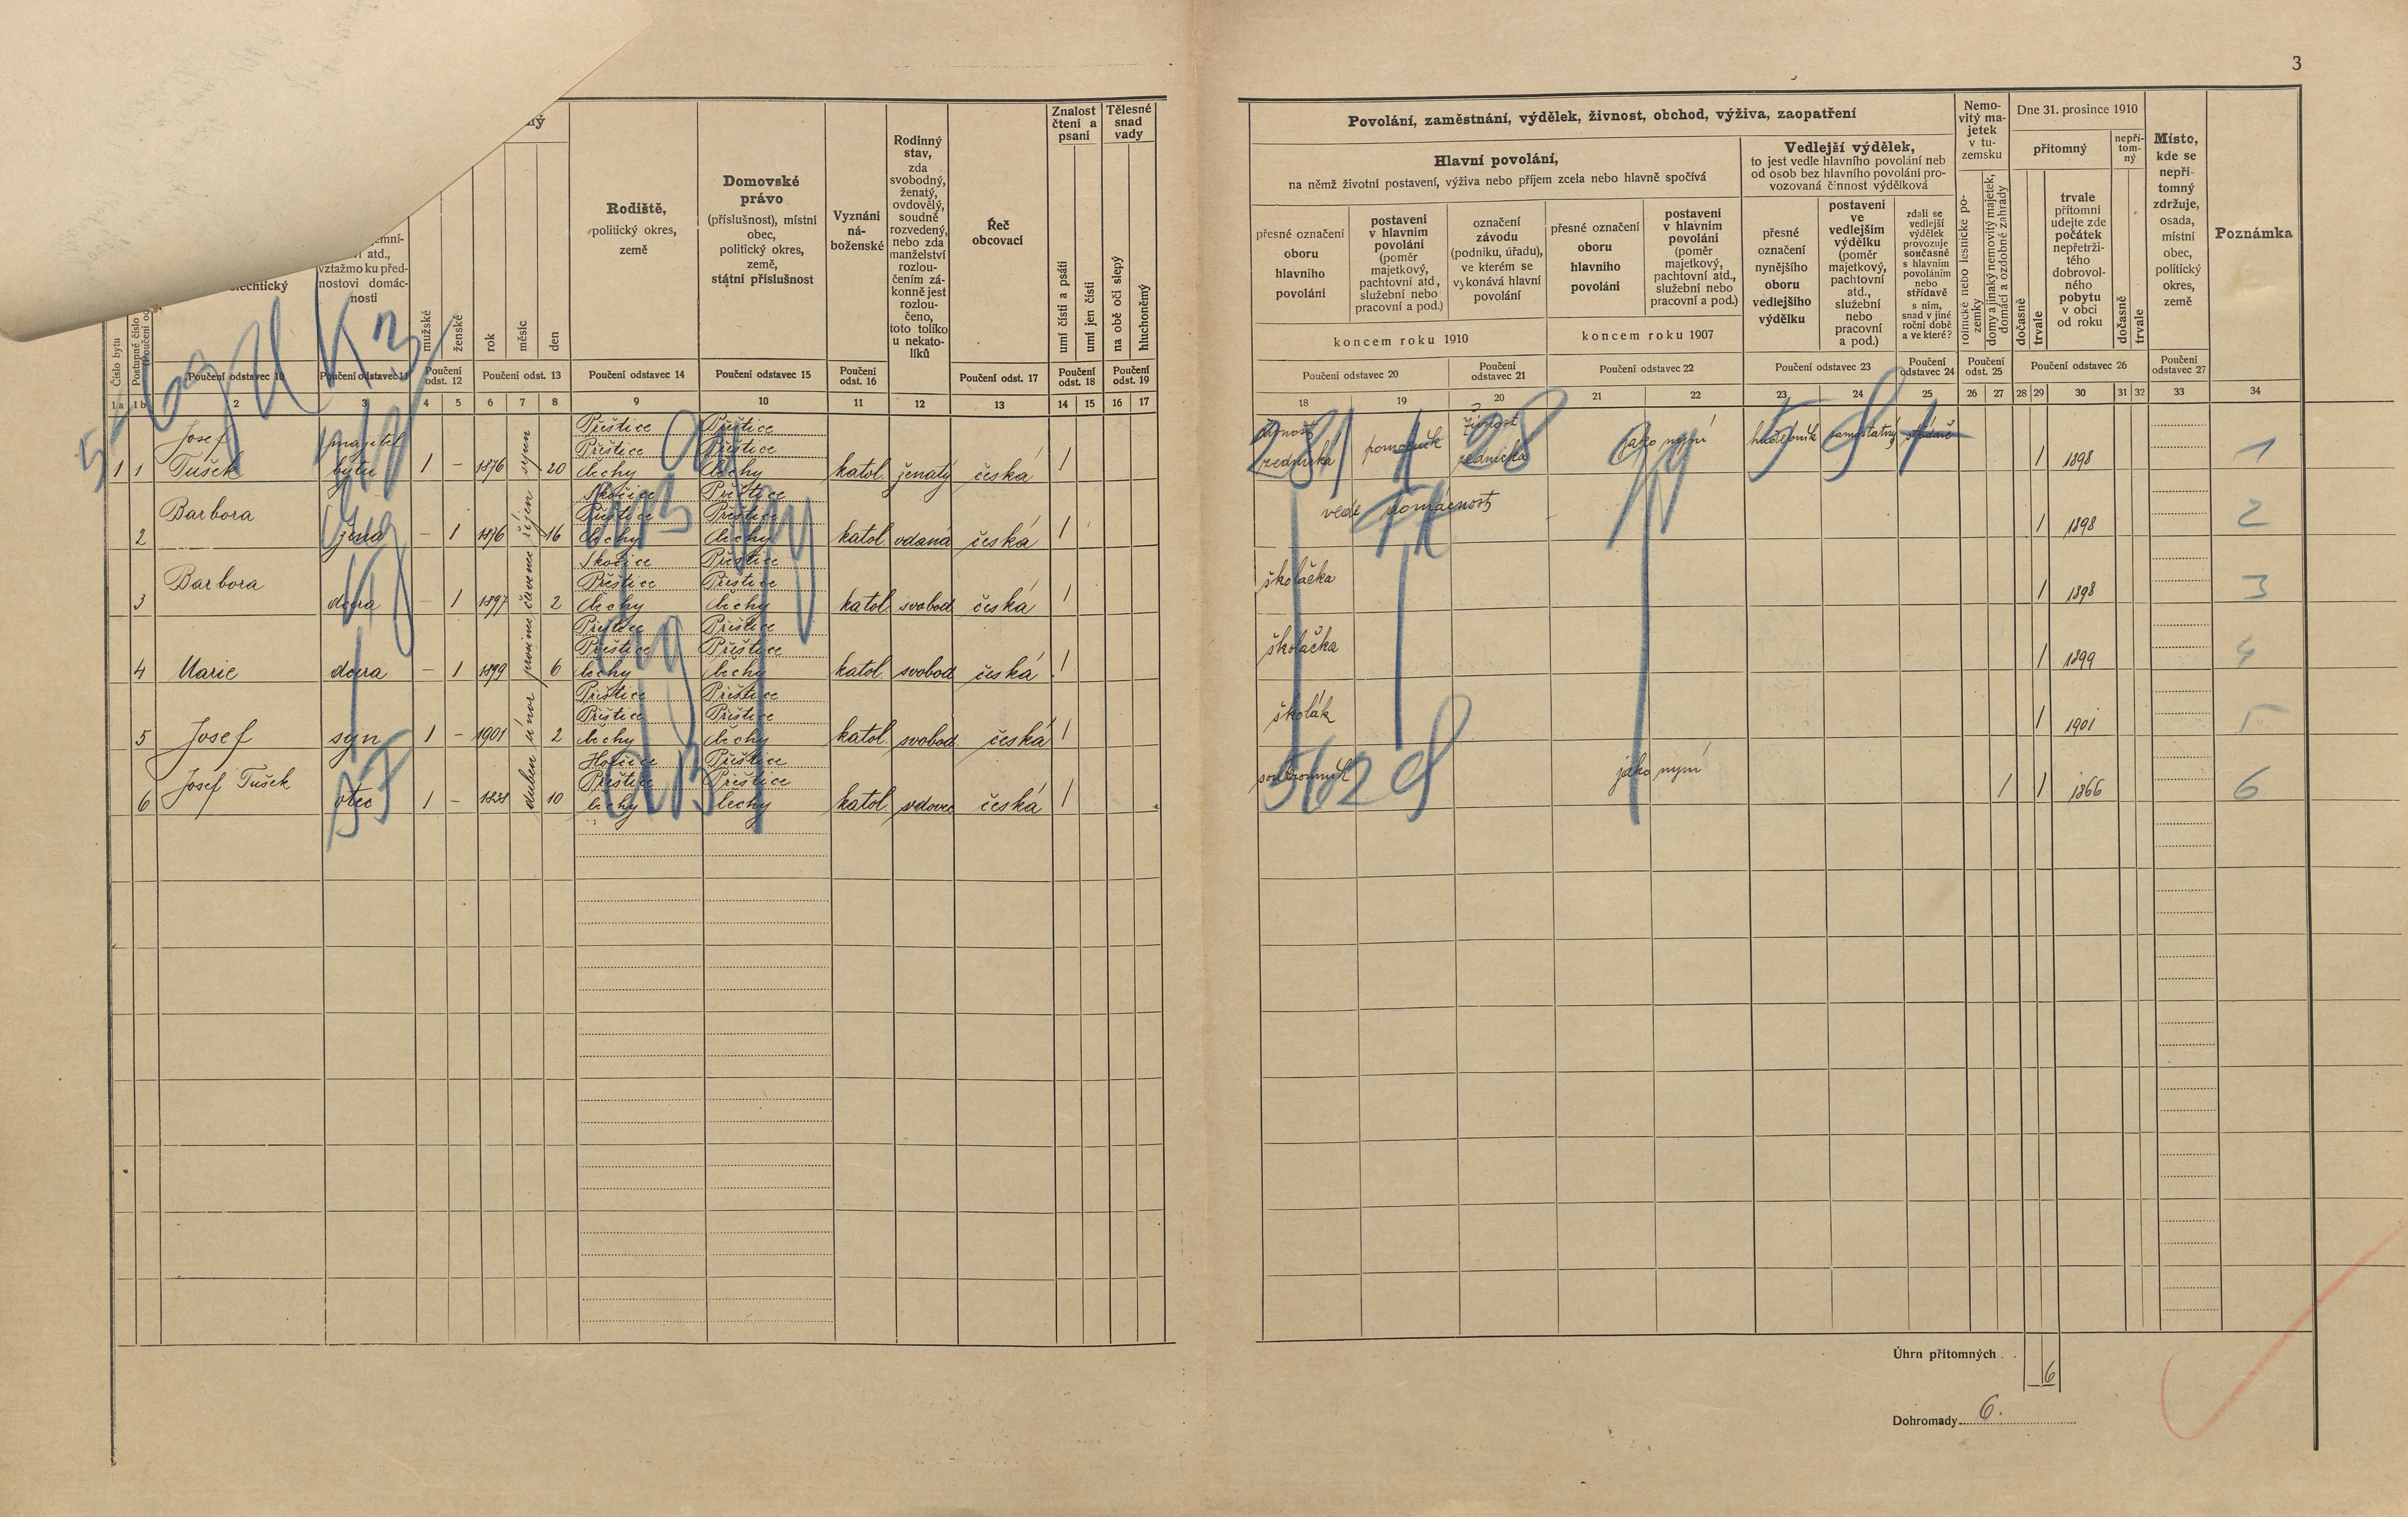 3
Rodiště,
politický okres,
země
Domovské
právo
(příslušnost), místní
obec,
politický okres,
země,
státní příslušnost
Vyznání
ná-
boženské
Rodinný
stav,
zda
svobodný,
ženatý,
ovdovělý,
soudně
rozvedený,
nebo zda
manželství
rozlou-
čením zá-
konně jest
rozlou-
čeno,
toto toliko
u nekato-
líků
Řeč
obcovací
Znalost
čtení a
psaní
umí čísti a psáti
umí jen čísti
Tělesné
snad
vady
na obě oči slepý
hluchoněmý
vztažmo ku před-
nostovi domác-
nosti
mužské
ženské
rok
měsíc
den
Číslo bytu
Poučení odstavec 10
Poučení odstavec 11
Poučení odst. 12
Poučení odst. 13
Poučení odstavec 14
Poučení odstavec 15
Poučení odst. 16
Poučení odst. 17
Poučení odst. 18
Poučení odst. 19
1a 1b 2 3 4 5 6 7 8 9 10 11 12 13 14 15 16 17
Povolání, zaměstnání, výdělek, živnost, obchod, výživa, zaopatření
Hlavní povolání,
na němž životní postavení, výživa nebo příjem zcela nebo hlavně spočívá
přesné označení
oboru
hlavního
povolání
postavení
v hlavním
povolání
(poměr
majetkový,
pachtovní atd.,
služební nebo
pracovní a pod.)
označení
závodu
(podniku, úřadu),
ve kterém se
vykonává hlavní
povolání
koncem roku 1910
přesné označení
oboru
hlavního
povolání
postavení
v hlavním
povolání
(poměr
majetkový,
pachtovní atd.,
služební nebo
pracovní a pod.)
koncem roku 1907
Vedlejší výdělek,
to jest vedle hlavního povolání neb
od osob bez hlavního povolání pro-
vozovaná činnost výdělková
přesné
označení
nynějšího
oboru
vedlejšího
výdělku
postavení
ve
vedlejším
výdělku
(poměr
majetkový,
pachtovní
atd.,
služební
nebo
pracovní
a pod.)
zdali se
vedlejší
výdělek
provozuje
současně
s hlavním
povoláním
nebo
střídavě
s ním,
snad v jiné
roční době
a ve které?
Nemo-
vitý ma-
jetek
v tu-
zemsku
rolnické nebo lesnické po-
zemky
domy a jinaký nemovitý majetek,
domácí a ozdobné zahrady
Dne 31. prosince 1910
přítomný
nepří-
tom-
ný
dočasně
trvale
trvale
přítomní
udejte zde
počátek
nepřetrži-
tého
dobrovol-
ného
pobytu
v obci
od roku
dočasně
trvale
Místo,
kde se
nepří-
tomný
zdržuje,
osada,
místní
obec,
politický
okres,
země
Poznámka
Poučení odstavec 20
Poučení odstavec 21
Poučení odstavec 22
Poučení odstavec 23
Poučení odstavec 24
Poučení odst. 25
Poučení odstavec 26
Poučení odstavec 27
18 19 20 21 22 23 24 25 26 27 28 29 30 31 32 33 34
1 1 Josef Tušek majitel bytu 1 – 1876 srpen 20 Přeštice Přeštice čechy Přeštice Přeštice čechy katol. ženatý česká 1
živnost zednická pomocník živnost zednická jako nyní hudebník samostatný 1 1898 1
2 Barbora žena – 1 1876 říjen 16 Skočice Přeštice čechy Přeštice Přeštice čechy katol vdaná česká 1
vede domácnost 1 1898 2
3 Barbora dcera – 1 1897 červenec 2 Skočice Přeštice čechy Přeštice Přeštice čechy katol svobod česká 1
školačka 1 1898 3
4 Marie dcera – 1 1899 prosinec 6 Přeštice Přeštice čechy Přeštice Přeštice čechy katol svobod česká 1
školačka 1 1899 4
5 Josef syn 1 – 1901 únor 2 Přeštice Přeštice čechy Přeštice Přeštice čechy katol. svobod. česká 1
školák 1 1901 5
6 Josef Tušek otec 1 – 1838 duben 10 Přeštice čechy Přeštice Přeštice čechy katol vdovec česká 1
soukromník jako nyní 1 1 1866 6
Úhrn přítomných 6
Dohromady 6.